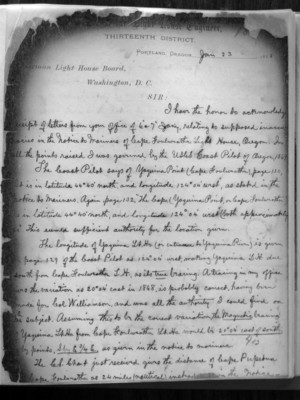 Light House Engineer,
THIRTEENTH DISTRICT,
PORTLAND, OREGON, Jan 23
Chairman Light House Board,
Washington, D. C.
SIR:
I have the honor to acknowledge
receipt of letters from your office of 6 & 7 relating to supposed
in the notice to Mariners of Cape Foulweather Light House, Oregon. In
all the points raised I was governed by the U.S. Coast Pilot of Oregon,
The Coast Pilot says of Yaquina Point (Cape Foulweather, page
it is in latitude 44° 40' north, and longitude 124° 05' west, as stated in the
notice to mariners. Again page 132, the Cape (Yaquina Point, or Cape Foulweather
is in latitude 44° 40' north, and longitude 124° 05' west (both approximate
This seemed sufficient authority for the location given.
The longitude of Yaquina L.H. (at entrance to Yaquina River) is given
page 129 of the Coast Pilot as 124° 05' west, making Yaquina L.H. due
south from Cape Foulweather L.H. as its true bearing. A tracing in my office
the variation as 20° 05' east in 1868, is probably correct, having been
made for Col Williamson, and was all the authority I could find on
subject. Assuming this to be the correct variation the Magnetic bearing
Yaquina L.H. from Cape Foulweather L.H. would be 20° 05' east of south
by points, as given in the notice to mariners
The chart just received gives the distance of Cape Perpetua
Cape Foulweather as 24 miles (nautical) instead in the Notice